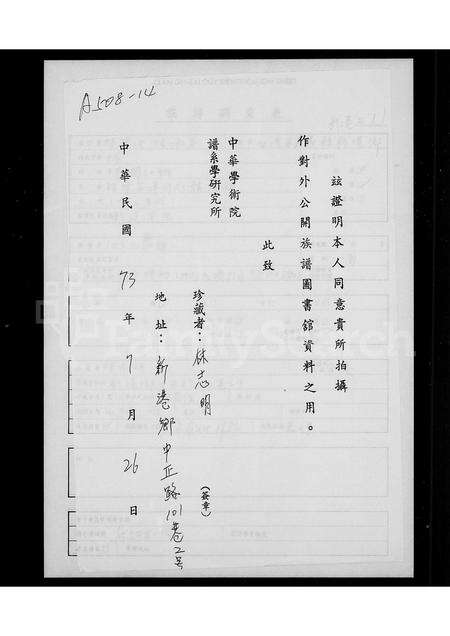 A508-14
茲證明本人同意貴所拍攝
作對外公開族譜圖書館資料之用。
此致
中華學術院
譜系學研究所
珍藏者：林志明
(簽章)
地址：新港鄉中正路101巷2号
中華民國73年7月26日
FamilySearch